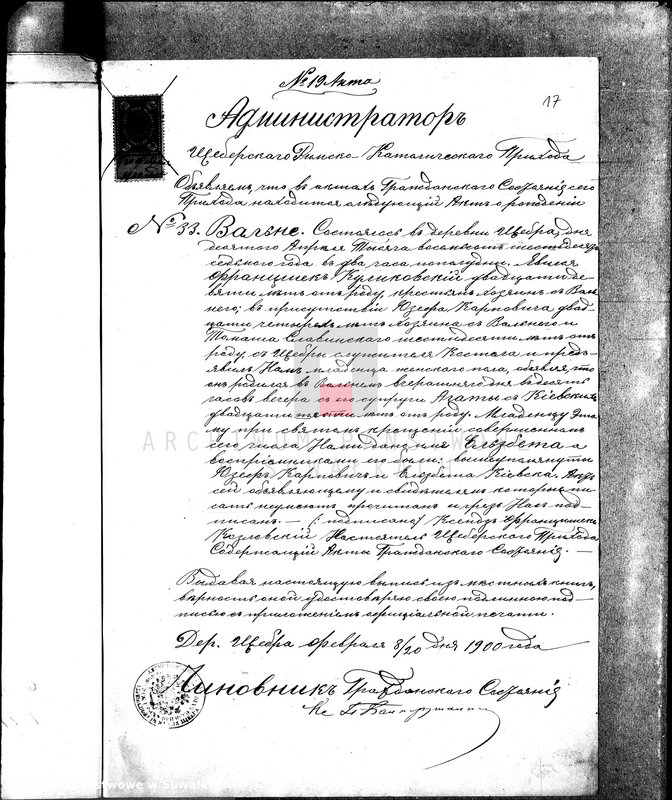 № 19 Акта
17
Администраторъ
Щеберскаго Римско-Католическаго Прихода
Объявляемъ, что въ актахъ Гражданскаго Состоянія сего
Прихода находится слѣдующій Актъ о рожденіи
№ 33. Вальне. Состоялось въ деревни Щебра, дня
десятаго Апрѣля Тысяча восемьсотъ шестьдесятъ
седьмого года въ два часа пополудни. Явился
Францишекъ Куликовскій двадцати де-
вяти лѣтъ отъ роду, крестьянъ хозяинъ съ Валь-
него; въ присутствіи Юзефа Карповича двад-
цати четырехъ лѣтъ хозяина съ Вальнего и
Томаша Славинскаго шестидесяти лѣтъ отъ
роду, съ Щебры служителя Костела и предъ-
явилъ Намъ младенца женскаго пола, объявляя, что
онъ родился въ Вальнемъ вчерашняго дня въ десять
часовъ вечера съ его супруги Агаты съ Кіевскихъ
двадцати шести лѣтъ отъ роду. Младенцу это-
му при святомъ крещеніи совершенномъ
сего числа Нами дано имя Елзбета а
воспріемниками его были: вышеупомянуты
Юзефъ Карповичъ и Елзбета Кіевска. Актъ
сей объявляющему и свидѣтелямъ которые пи-
сать неумѣютъ прочитанъ и чрезъ Насъ под-
писанъ. — (:подписано) Ксендзъ Францишекъ
Козловскій Настоятель Щеберскаго Прихода
Содержащій Акты Гражданскаго Состоянія. —
Выдавая настоящую выпись изъ мѣстныхъ книгъ,
вѣрность оной удостовѣряю своею подлинною под-
писью съ приложеніемъ оффиціальной печати.
Дер. Щебра Февраля 8/20 дня 1900 года
Чиновникъ Гражданскаго Состоянія
Кс П
ARCHIWUM PAŃSTWOWE
W SUWAŁKACH
wowe w Suwałk